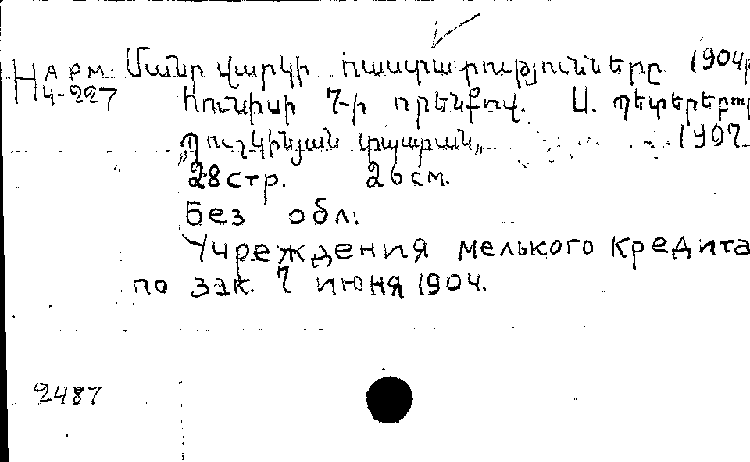 Н АРМ Մանր վարկի հաստատությունները 1904թ
4-227 հունիսի 7-ի օրենքով. Ս. պետերբուր
„Պուշկինյան տպարան„ 1907
28 стр. 26 см.
Без обл.
Учреждения мелького кредита
по зак. 7 июня 1904.
2487